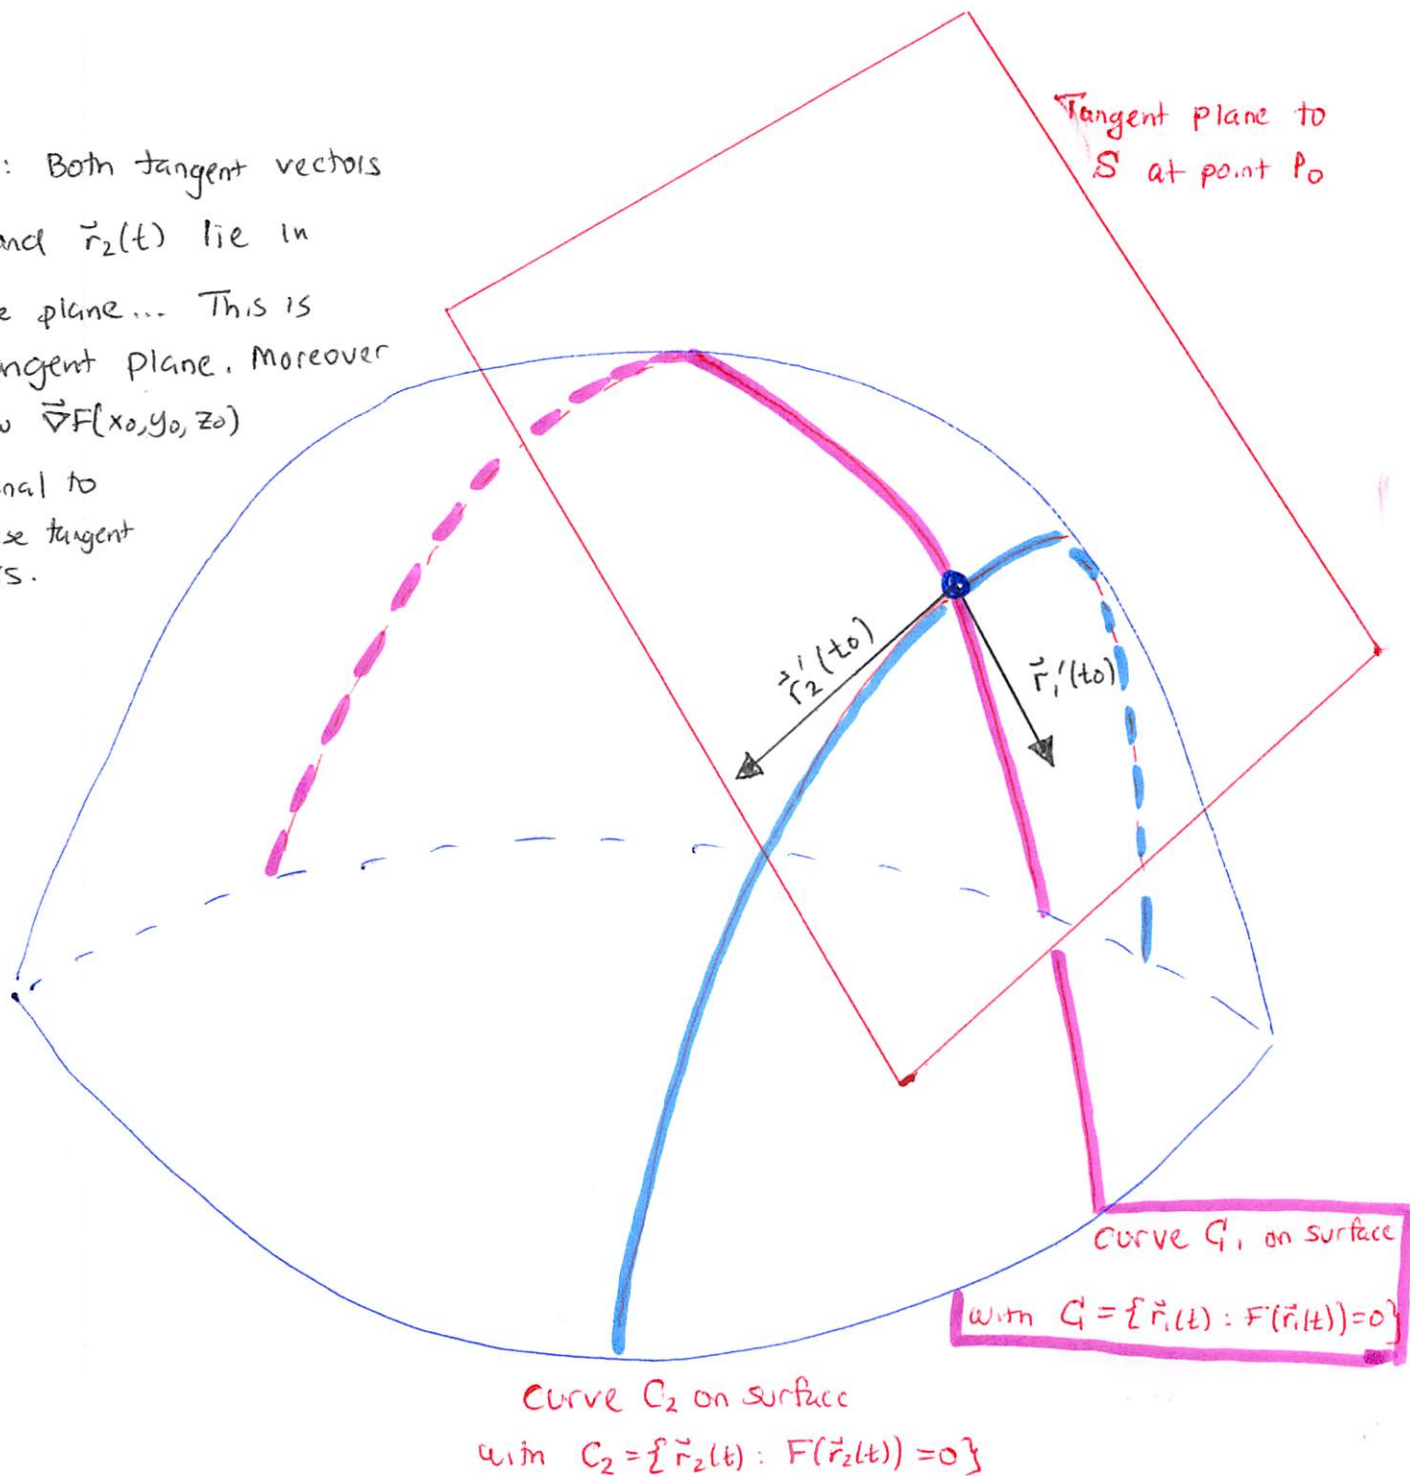 : Both tangent vectors
and r⃗₂(t) lie in
e plane... This is
ngent plane. Moreover
∇⃗F(x₀,y₀,z₀)
nal to
se tangent
s.
Tangent plane to
S at point P₀
r⃗₂'(t₀)
r⃗₁'(t₀)
curve C₁ on surface
with C₁ = {r⃗₁(t) : F(r⃗₁(t))=0}
curve C₂ on surface
with C₂ = {r⃗₂(t) : F(r⃗₂(t)) =0}